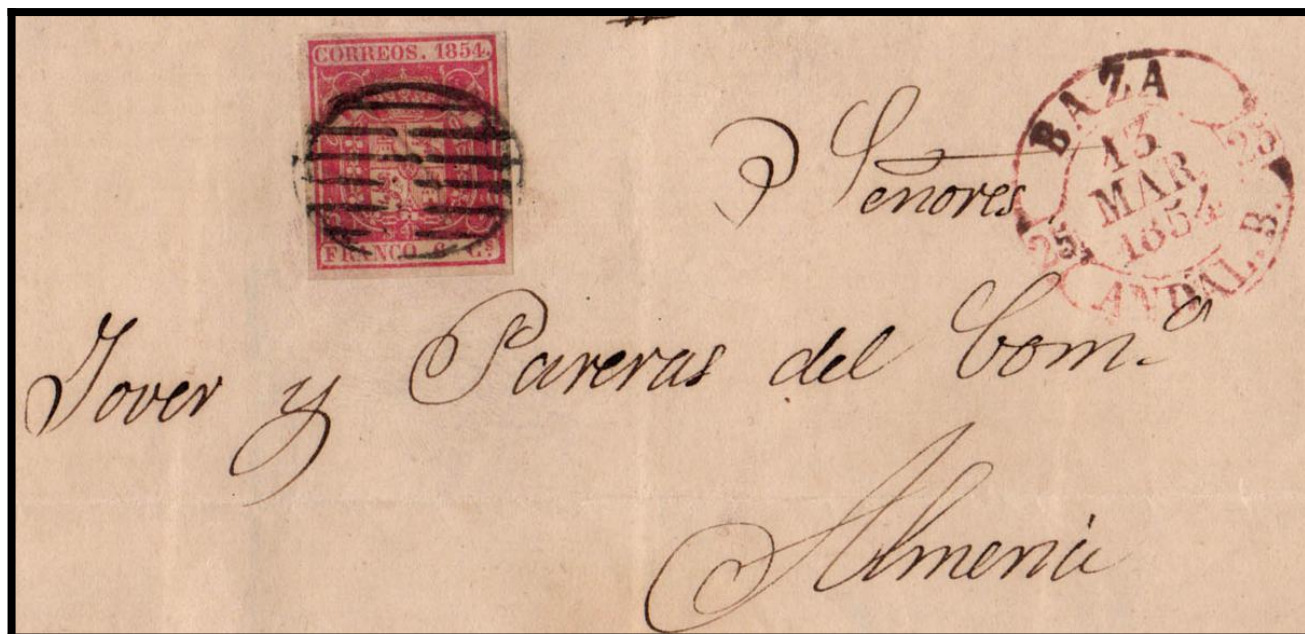 CORREOS. 1854.
FRANCO. 6 Cs
BAZA
25
13
MAR
1854
25
ANDAL. B.
Señores
Jover y Pareras del Com.o
Almería